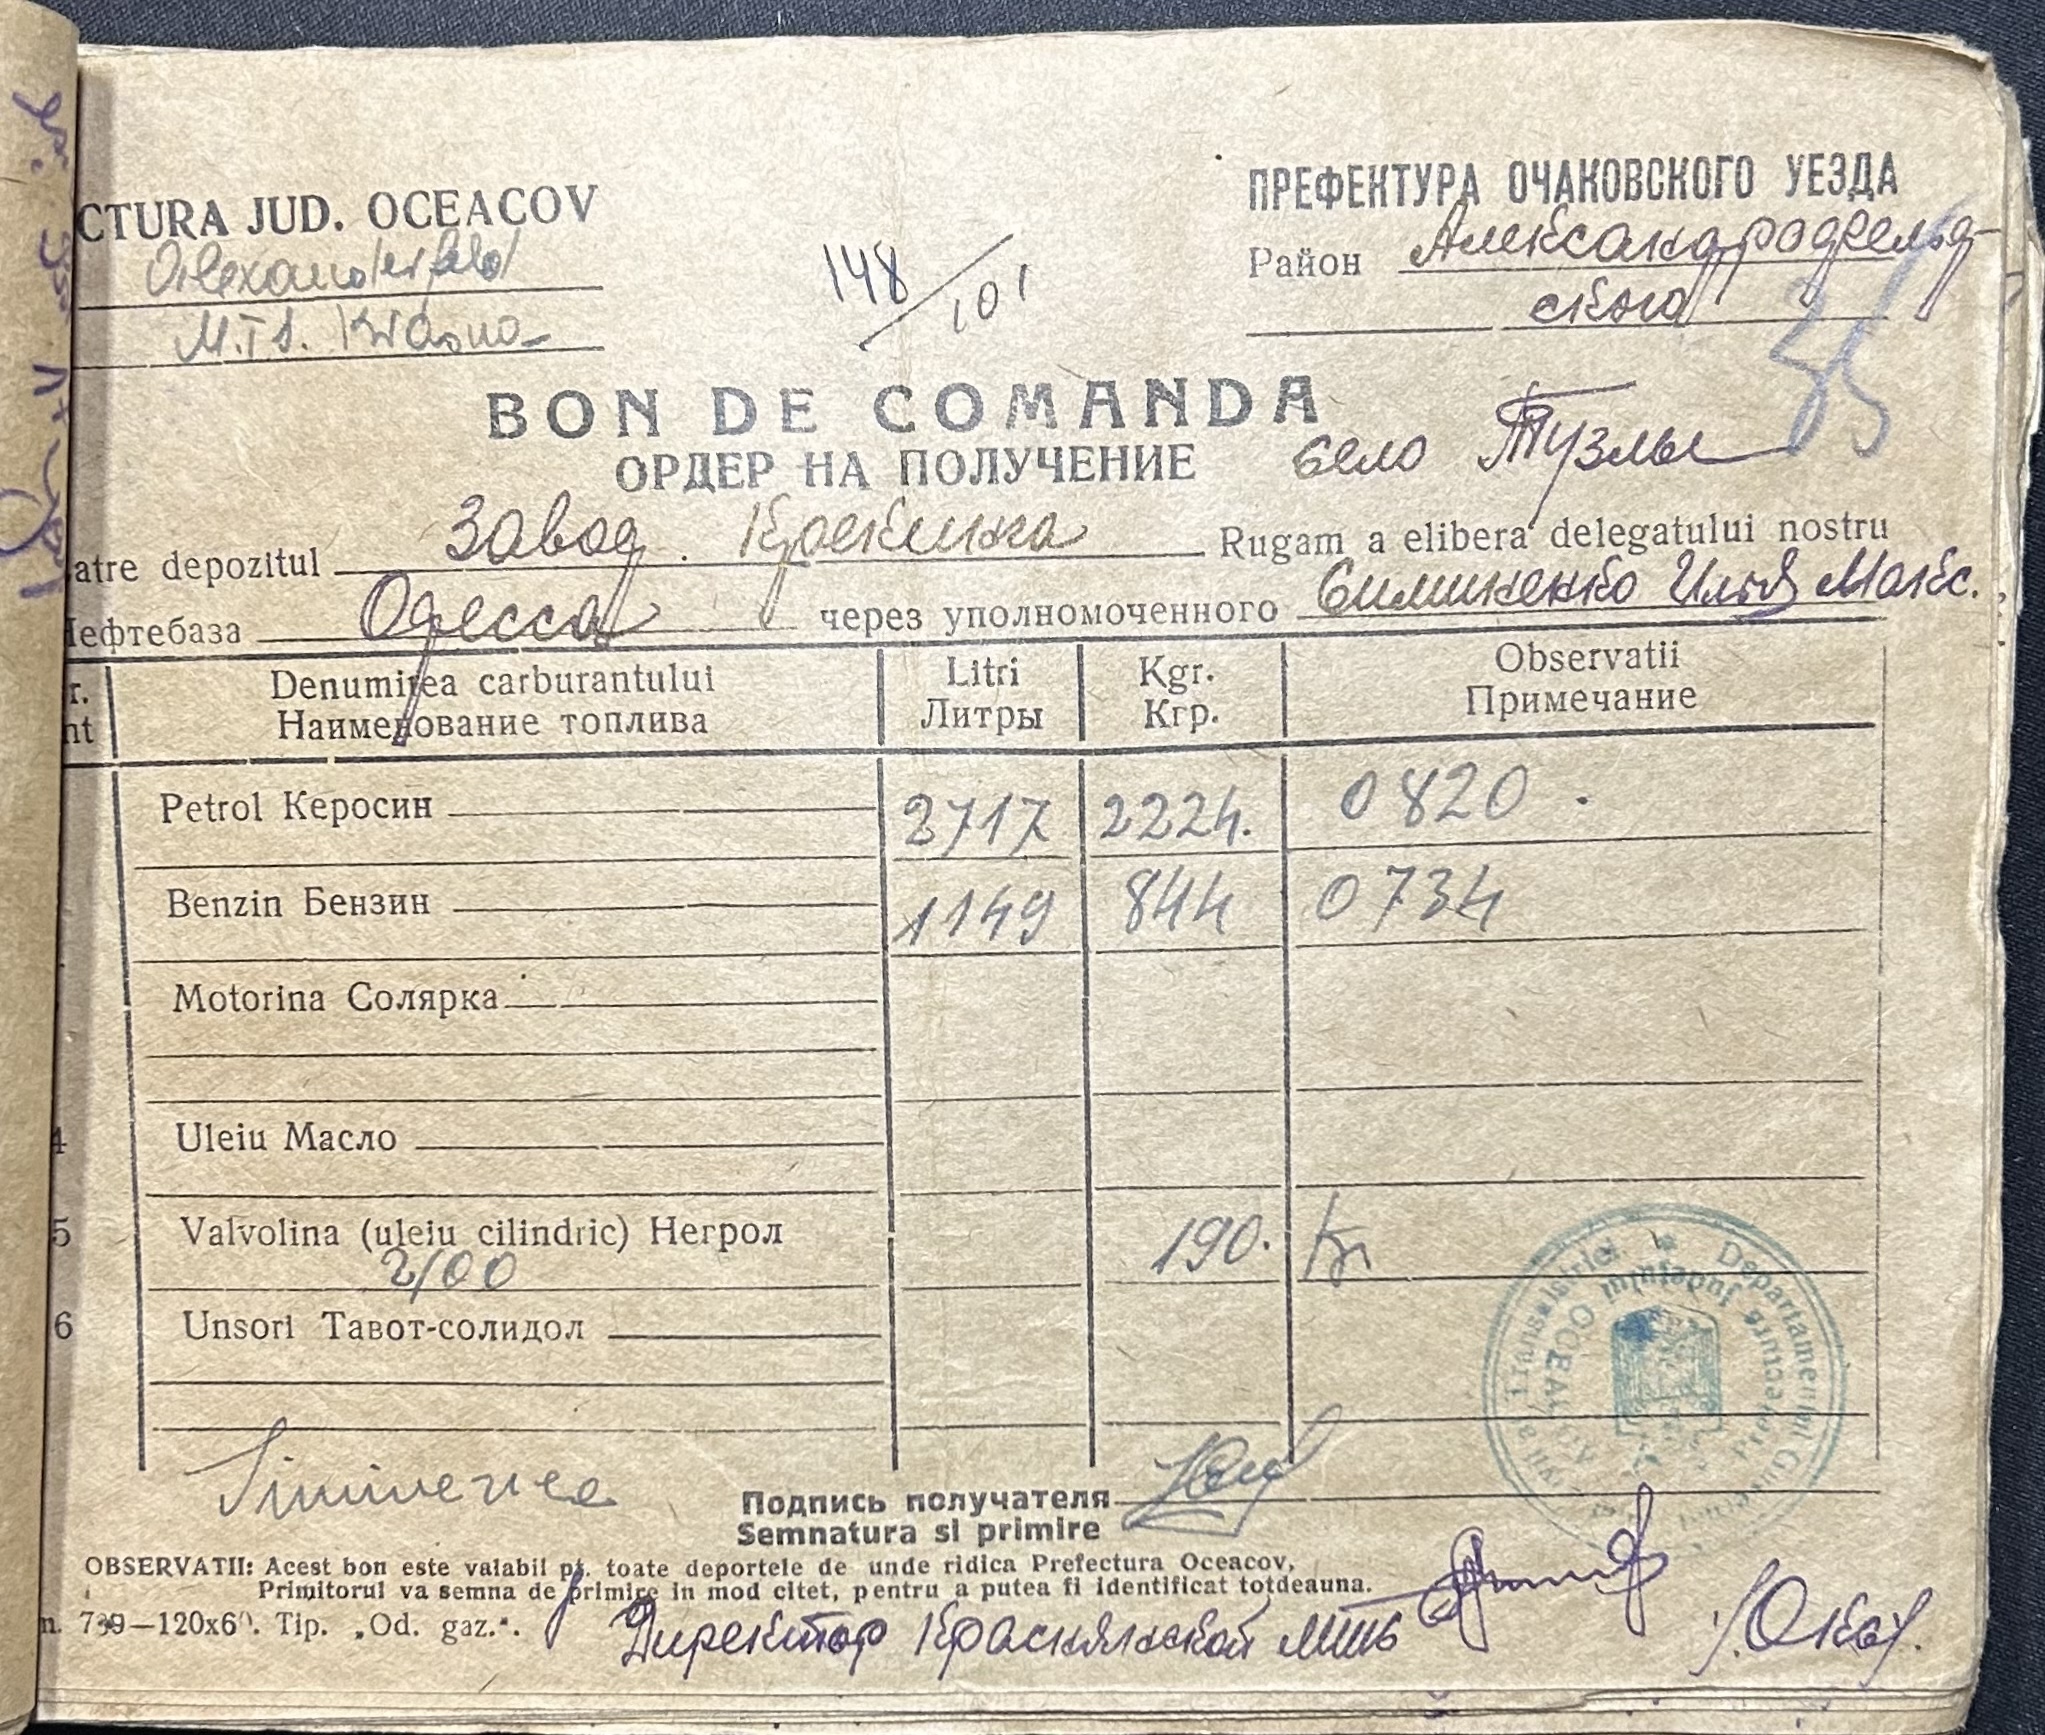 CTURA JUD. OCEACOV
ПРЕФЕКТУРА ОЧАКОВСКОГО УЕЗДА
Alexanderfeld
Район Александрофельд-
ского
M.T.S. Krasna
148/101
35
BON DE COMANDA
ОРДЕР НА ПОЛУЧЕНИЕ
село Тузлы
atre depozitul Завод Rugam a elibera delegatului nostru
Нефтебаза Одесса через уполномоченного Симиненко Илья Макс.
r. Denumirea carburantului Litri Kgr. Observatii
nt Наименование топлива Литры Кгр. Примечание
Petrol Керосин 2717 2224. 0820.
Benzin Бензин 1149 844 0734
Motorina Солярка
4 Uleiu Масло
5 Valvolina (uleiu cilindric) Негрол 190. Kг
2/00
6 Unsori Тавот-солидол
Подпись получателя
Semnatura si primire
OBSERVATII: Acest bon este valabil pt. toate deportele de unde ridica Prefectura Oceacov,
Primitorul va semna de primire in mod citet, pentru a putea fi identificat totdeauna.
n. 739—120x60. Tip. „Od. gaz.“.
Директор Краснянской мтс
Transnistriei Departamentul
Prefectura Judeţului OCEACOV